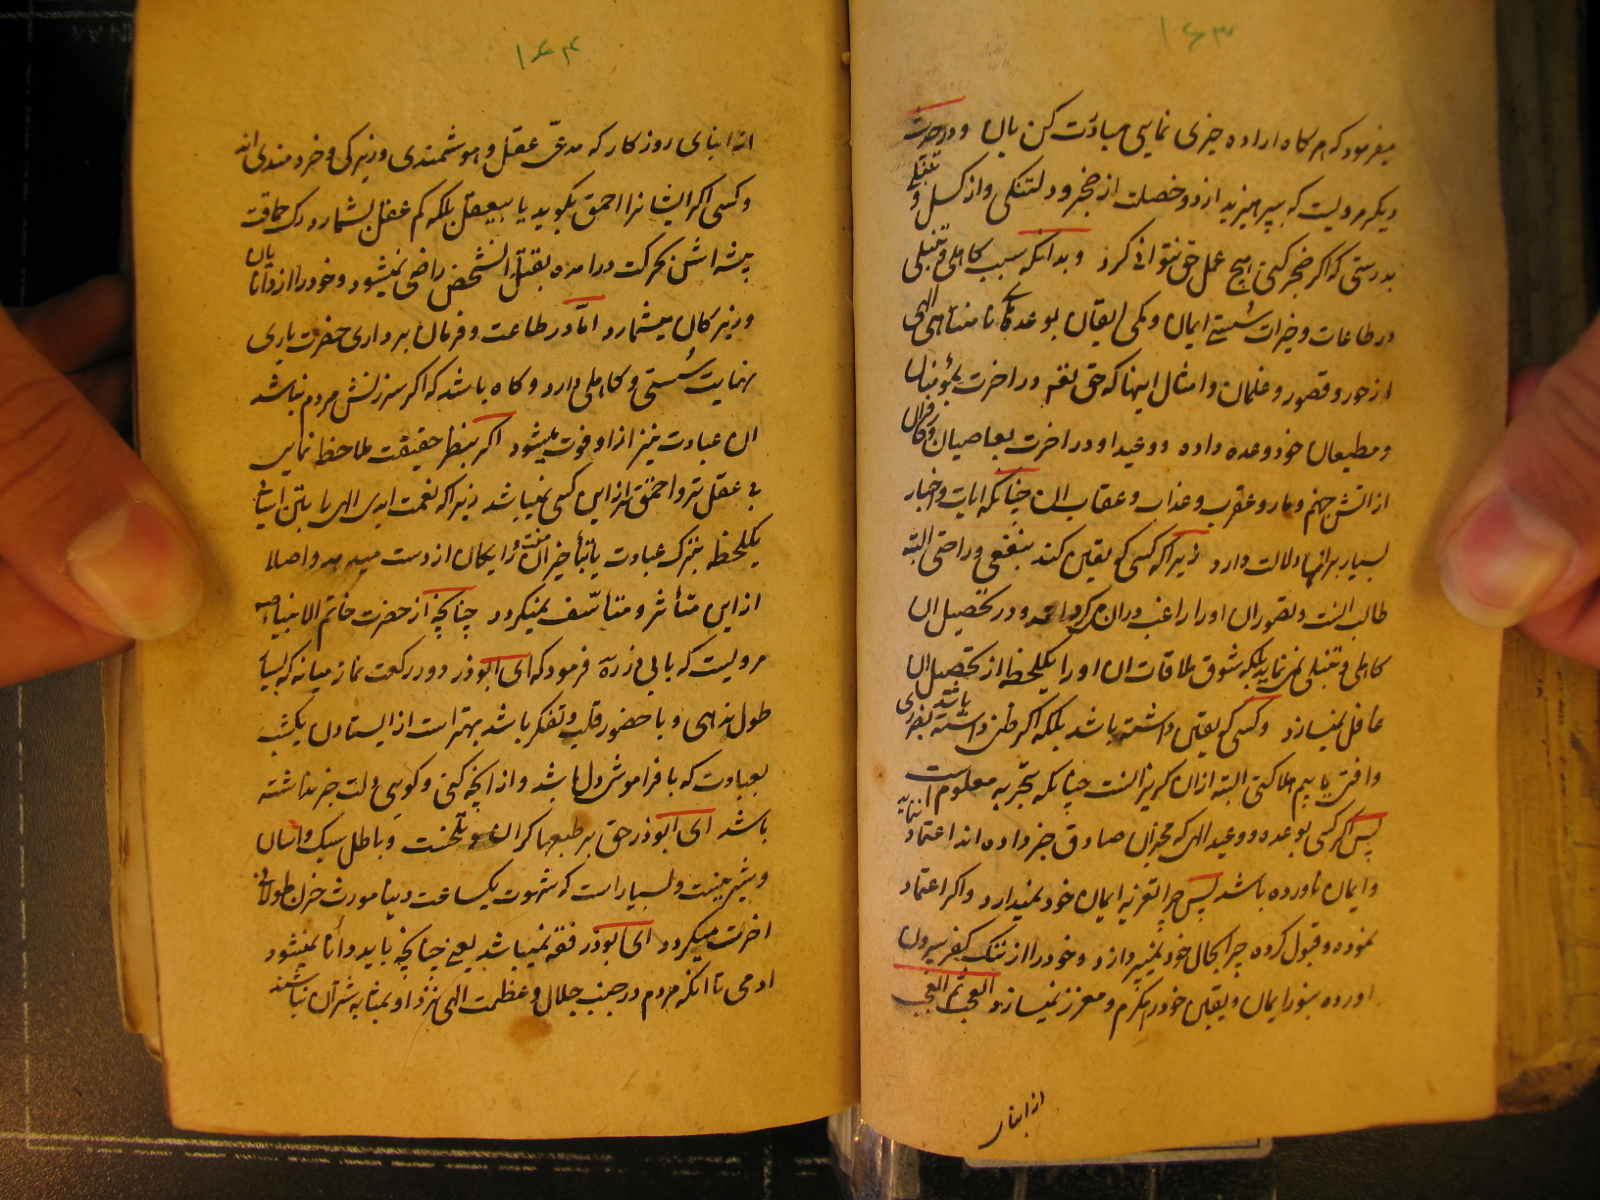 ۱۶۳
میفرمود که هر کاه اراده چیزی نمایی مبادرت کن بان و در حدیث
دیکر مرویست که بپرهیزید از دو خصلت از ضجر و دلتنکی و از کسل و تنبلی
بدرستی که اکر ضجر کنی هیچ عمل حق نتوانی کرد و بدانکه سبب کاهلی و تنبلی
در طاعات و خیرات سستی ایمان و کمی ایقان بوعدهای نامتناهی الهی
از حور و قصور و غلمان و امثال اینها که حق تعه در اخرت بمؤمنان
و مطیعان خود وعده داده و وعید او در اخرت بعاصیان و کافران
از اتش جهنم و مار و عقرب و عذاب و عقاب ان چنانکه ایات و اخبار
بسیار برانها دلالت دارد زیرا که کسی که یقین کند بنفعی و راحتی البته
طالب انست و تصور ان او را راغب دران و در تحصیل ان
کاهلی و تنبلی نمی نماید بلکه شوق ملاقات ان او را یکلحظه از تحصیل ان
غافل نمیسازد و کسی که یقین داشته باشد بلکه اکر ظن داشته باشد بضرری
و افتی یا بیم هلاکتی البته ازان کریزانست چنانکه بتجربه معلوم است
پس اکر کسی بوعده و وعید الهی که مخبران صادق خبر داده اند اعتماد ننماید
و ایمان ناورده باشد پس چرا تعزیه ایمان خود نمیدارد و اکر اعتماد
نموده و قبول کرده چرا بحال خود نمیپردازد و خود را از ننک کفر بیرون
اورده بنور ایمان و یقین خود را مکرم و معزز نمیسازد العجب ثم العجب
از ابنای
۱۶۴
از ابنای روزکار که مدعی عقل و هوشمندی و زیرکی و خردمندی اند
و کسی اکر ایشانرا احمق بکوید یا بیعقل بلکه کم عقل بشمارد رک حماقت
پیشه اش بحرکت درامده بقتل انشخص راضی نمیشود و خود را از دانایان
و زیرکان میشمارد امّا در طاعت و فرمان برداری حضرت باری
نهایت سستی و کاهلی دارد و کاه باشد که اکر سرزنش مردم نباشد
ان عبادت نیز از او فوت میشود اکر بنظر حقیقت ملاحظه نمایی
بی عقل تر و احمق تر از این کسی نمیباشد زیرا که نعمت ابدی الهی را
یکلحظه بترک عبادت یا بتأخیر ان مفت و رایکان از دست میدهد و اصلا
از این متأثر و متأسّف نمیکردد چنانچه از حضرت خاتم الانبیاء
مرویست که بابی ذر ره فرمود که ای ابوذر دو رکعت نماز میانه که بسیار
طول ندهی و با حضور قلب و تفکر باشد بهتر است از ایستادن یکشب
بعبادت که با فراموشی دل باشد و از انچه کنی و کویی دلت خبر نداشته
باشد ای ابوذر حق بر طبعها کران و تلخست و باطل سبک و اسان
و شیرینست و بسیار است که شهوت یکساعت دنیا مورث حزن طولانی
اخرت میکردد ای ابوذر فقه نمیباشد یعنی چنانچه باید دانا نمیشود
ادمی تا انکه مردم در جنب جلال و عظمت الهی نزد او بمثابه شتران نباشند